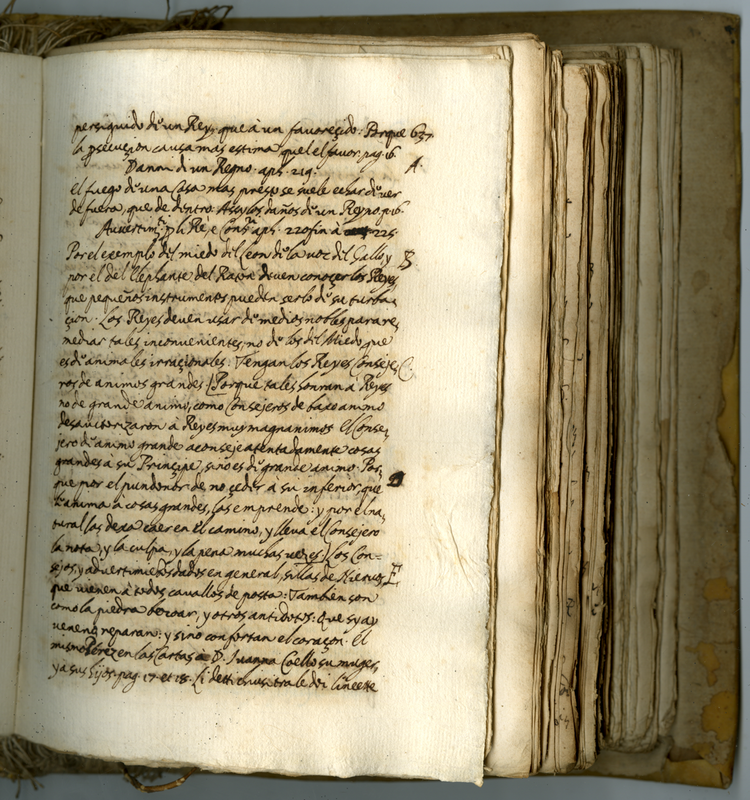 persiguido de un Rey, que à un favoreçido: Porque 637
la psecucion causa mas estima, quel el favor. pag. 16.
Danni di un Regno. aps. 219. A.
el fuego de una Casa mas presto se suele echar de ver
de fuera, que de dentro. Assy los daños de un Reyno. p. 16.
Avvertim.ti p li Re, e Cons.ri aps. 220 fin à 225.
Por el exemplo del miedo del Leon de la voz del Gallo, y B.
por el del Elephante del Raton deven conoçer los Reyes
que pequeños instrumentos pueden serlo de su turba-
çion. Los Reyes deven usar de medios nobles para re-
mediar tales inconvenientes, no de los del Miedo, que
es de animales irracionales. Tengan los Reyes Conseje- C.
ros de animos grandes. Porque tales honran à Reyes
no de grande animo, como Consejeros de baxo animo
desautorizaron à Reyes muy magnanimos. El Conse-
jero de animo grande aconseje atentadamente cosas
grandes a su Principe, si no es di grande animo. Por-
que por el pundonor de no çeder à su inferior, que D
le anima à cosas grandes, las emprende: y por el na-
tural las dexa caer en el camino, y lleva el Consejero
la nota, y la culpa, y la pena muchas vezes. Los Con-
sejos, y advertimientos dados en general, sillas de Hierros E
que vienen à todos cavallos de posta: Tambien son
como la piedra bezoar, y otros antidotos: Que sy ay
veneno reparan: y sino confortan el coraçon. El
mismo Perez en las Cartas à D. Juanna Coello su muger,
y a sus hijos. pag. 17. et 18. Li detti